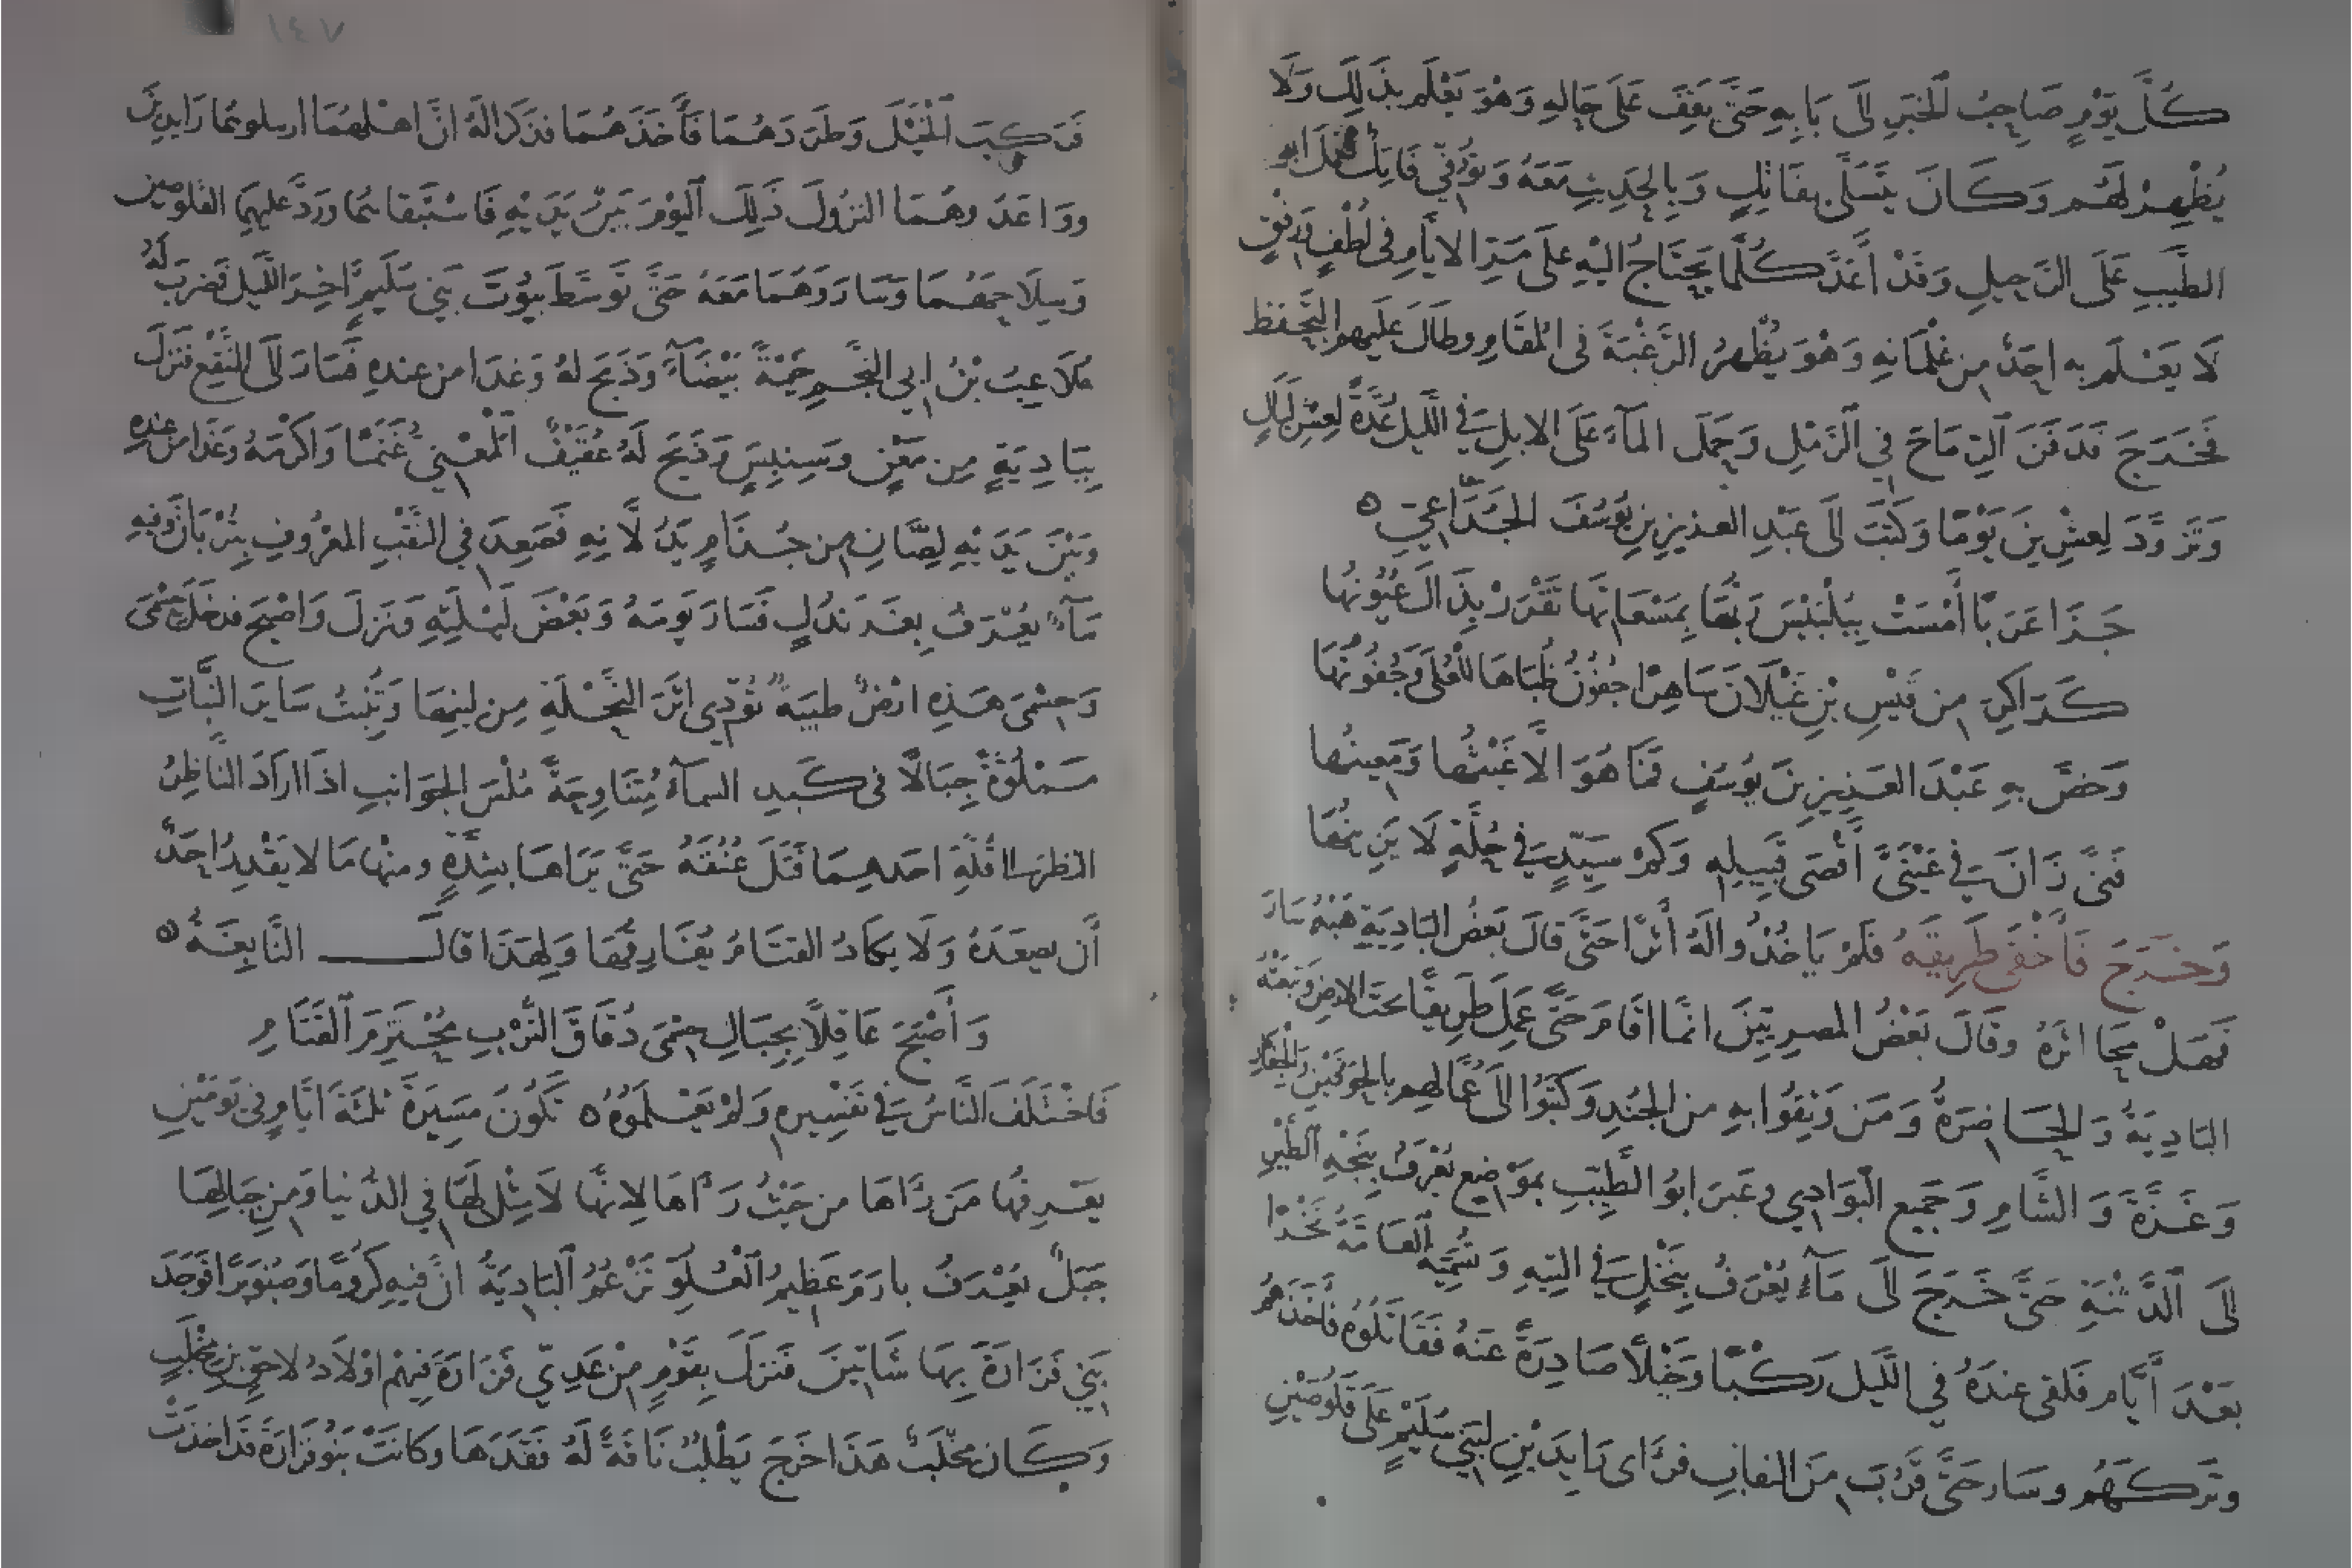 كُلَّ يَوْمٍ صَاحِبُ الْخَبَرِ إلَى بَابِهِ حَتَّى يَقِفَ عَلَى حَالِهِ وَهْوَ يَعْلَم بِذَلِكَ وَلَا
يُظْهِرُ لَهُم وَكَانَ يَتَسَلَّى بِفَاتِكٍ وَبِالحَدِيثِ مَعَهُ وَتُوُفِّيَ فَاتِكٌ فعمل ابو
الطَّيِّبِ عَلَى الرَّحِيلِ وَقَدْ أَعَدَّ كُلَّمَا يَحْتَاجُ اليْهِ عَلَى مَرِّ الايَّامِ فى لُطْفٍ وَرِفْقٍ
لَا يَعْلَم به احَدٌ مِن غِلْمَانِهِ وَهْوَ يُظْهِرُ الرَّغْبَةَ فى الْمُقَامِ وطَالَ عَلَيهِم التَّحَفُّظ
فَخَرَجَ فَدَفَنَ الرِّمَاحَ فِي الرَّمْلِ وَحَمَلَ المَآءَ عَلَى الابِلِ فِي اللَّيلِ عُدَّةً لِعِشْرِ لَيَالٍ
وَتَزَوَّدَ لِعِشْرِينَ يَوْمًا وَكَتَبَ إلَى عَبْدِ العَزِيزِ بنِ يُوسُفَ الخُزَاعِيِّ ه
جَزَا عَرَبًا أَمْسَتْ بِبُلْبَيْسَ رَبُّهَا بِمَسْعَاتِهَا تَقْرَرْ بِذَاكَ عُيُونُهَا
كَرَاكِرَ مِن قَيْسِ بْنِ عَيْلَانَ سَاهِرًا جُفُونُ ظُبَاهَا لِلْعُلَى وَجُفُونُهَا
وَخَصَّ بِهِ عَبْدَ العَزِيزِ بنَ يُوسُفٍ فَمَا هُوَ الَّا غَيْثُهَا وَمَعِينُها
فَتًى زَانَ فِي عَيْنَيَّ أَقْصَى قَبِيلِهِ وَكَمْ سَيِّدٍ فِي حُلَّةٍ لَا يَزِينُهَا
وَخَرَجَ فَأَخْفَى طَرِيقَهُ فَلَمْ يَاخُذُوا لَهُ أَثَرًا حَتَّى قَالَ بَعْضُ البَادِيَةِ هَبْهُ سَارَ
فَهَلْ مَحَا اثَرَهُ وقَالَ بَعْضُ المِصرِيِّينَ انَّمَا اقَامَ حَتَّى عَمِلَ طَرِيقًا تَحتَ الارضِ وَتَبِعَتْهُ
البَادِيَةُ وَالحَاضِرَةُ وَمَن وَثِقُوا بِهِ مِنَ الجُندِ وَكَتَبُوا إلَى عُمَّالِهِم بالحَوْفَيْنِ وَالجِفَارِ
وَغَزَّةَ وَالشَّامِ وَجَمِيعِ الْبَوَادِي وعَبَرَ ابُو الطَّيِّبِ بِمَوْضِعٍ يُعْرَفُ بِنَجْهِ الطَّيْرِ
إلَى الرَّثْنَةِ حَتَّى خَرَجَ إلَى مَآءٍ يُعْرَفُ بِنَخْلٍ فِي التِيهِ وَتُسَمِّيهِ الْعَامَّةُ نَخْرًا
بَعْدَ أَيَّامٍ فَلقى عِندَهُ فِي اللَّيلِ رَكْبًا وَخَيْلًا صَادِرَةً عَنهُ فَقَاتَلُوهُ فَأَخَذَهُم
وتَرَكَهُم وسَارَ حَتَّى قَرُبَ مِنَ النقابِ فرَأَى رَايِدَيْنِ لِبَنِي سُلَيْمٍ عَلَى قَلُوصَيْنِ
١٤٧
فَرَكِبَ الْخَيْلَ وَطَرَدَهُمَا فَأَخَذَهُمَا فذكَرَا لَهُ انَّ اهْلَهُمَا ارسلوهُمَا رَايدِينَ
ووَاعَدُوهُمَا النزُولَ ذَلِكَ الْيَوْمَ بَيْنَ يَدَيْهِ فَاسْتَبْقَاهُمَا ورَدَّ عليهِمَا القَلُوصين
وَسِلَاحَهُمَا وَسَارَ وَهُمَا مَعَهُ حَتَّى تَوَسَّطَ بيُوتَ بَنِي سُلَيمٍ اخِرَ اللَّيلِ فَضَرَبَ لَهُ
مُلَاعِبُ بْنُ ابِي النَّجْمِ خَيْمَةً بَيْضَآءَ وَذَبَحَ لهُ وَغَدَا من عندِهِ فَسَارَ إلَى النَّقْعِ فَنَزَلَ
بِبَادِيَةٍ مِن مَعْنٍ وَسِنبِسٍ وَذَبَحَ لَهُ عُفَيْفٌ الْمَعْنِيُّ غَنَمًا وَاكْرَمَهُ وَغَدَا مِن عِندِهِ
وَبَيْنَ يَدَيْهِ لِصَّانِ مِن جُذَامٍ يَدُلَّانِهِ فَصَعِدَ فِي النَّقْبِ المَعْرُوفِ بِتُرْبَانَ وَفِيهِ
مَآءٌ يُعْرَفُ بِغَرَنْدَلٍ فَسَارَ يَوْمَهُ وَبَعْضَ لَيْلَتِهِ وَنَزَلَ وَاصْبَحَ فدَخَلَ حِسْمَى
وَحِسْمَى هَذِهِ ارْضٌ طَيِّبَةٌ تُؤَدِّي اثَرَ النَّحْلَةِ مِن لِينِهَا وَتُنبِتُ سَايرَ النَّبَاتِ
مَمْلُوَّةٌ جِبَالًا فى كَبِدِ السمَآءِ مُتَنَاوِحَةً مُلْسَ الجَوَانبِ اذَا ارَادَ النَّاظِرُ
النظر إلَى قُلَّةِ احَدِهَا فَتَلَ عُنُقَهُ حَتَّى يَرَاهَا بِشِدَّةٍ ومنهَا مَا لا يَقْدِرُ احَدٌ
أَن يصعَدَهُ وَلَا يَكَادُ القَتَامُ يُفَارِقُهَا وَلِهَذَا قَالَ النَّابِغَةُ ه
وَأَصْبَحَ عَاقِلًا بِجِبَالِ حِسْمَى دُقَاقَ التُّرْبِ مُحْتَزِمَ الْقَتَامِ
فَاخْتَلَفَ النَّاسُ فِي تَفْسِيرِهِ وَلَمْ يَعْلَمُوهُ ه تَكُونُ مَسِيرَةَ ثلثَةَ ايَّامٍ فِي يَوْمَيْنِ
يَعْرِفُهَا مَن رَّآهَا مِن حَيْثُ رَآهَا لِانَّهَا لَا مِثْلَ لَهَا فِي الدُّنْيَا وَمِن جِبَالِهَا
جَبَلٌ يُعْرَفُ بِارَمَ عَظِيمُ الْعُلُوِّ تَزْعُمُ الْبَادِيَةُ انَّ فِيهِ كُرُومًا وَصَنَوْبَرًا فَوَجَدَ
بَنِي فَزَارَةَ بِهَا شَاتِينَ فَنَزَلَ بِقَوْمٍ مِنْ عَدِيِّ فَزَارَةَ فِيهِمْ اوْلَادُ لاحِقِ بنِ مُخَلَّبٍ
وَكَانَ مُخَلَّبٌ هَذَا خَرَجَ يَطْلُبُ نَاقَةً لَهُ فَقَدَهَا وَكَانَتْ بَنُو فَزَارَةَ قَدَ اخذَتْ